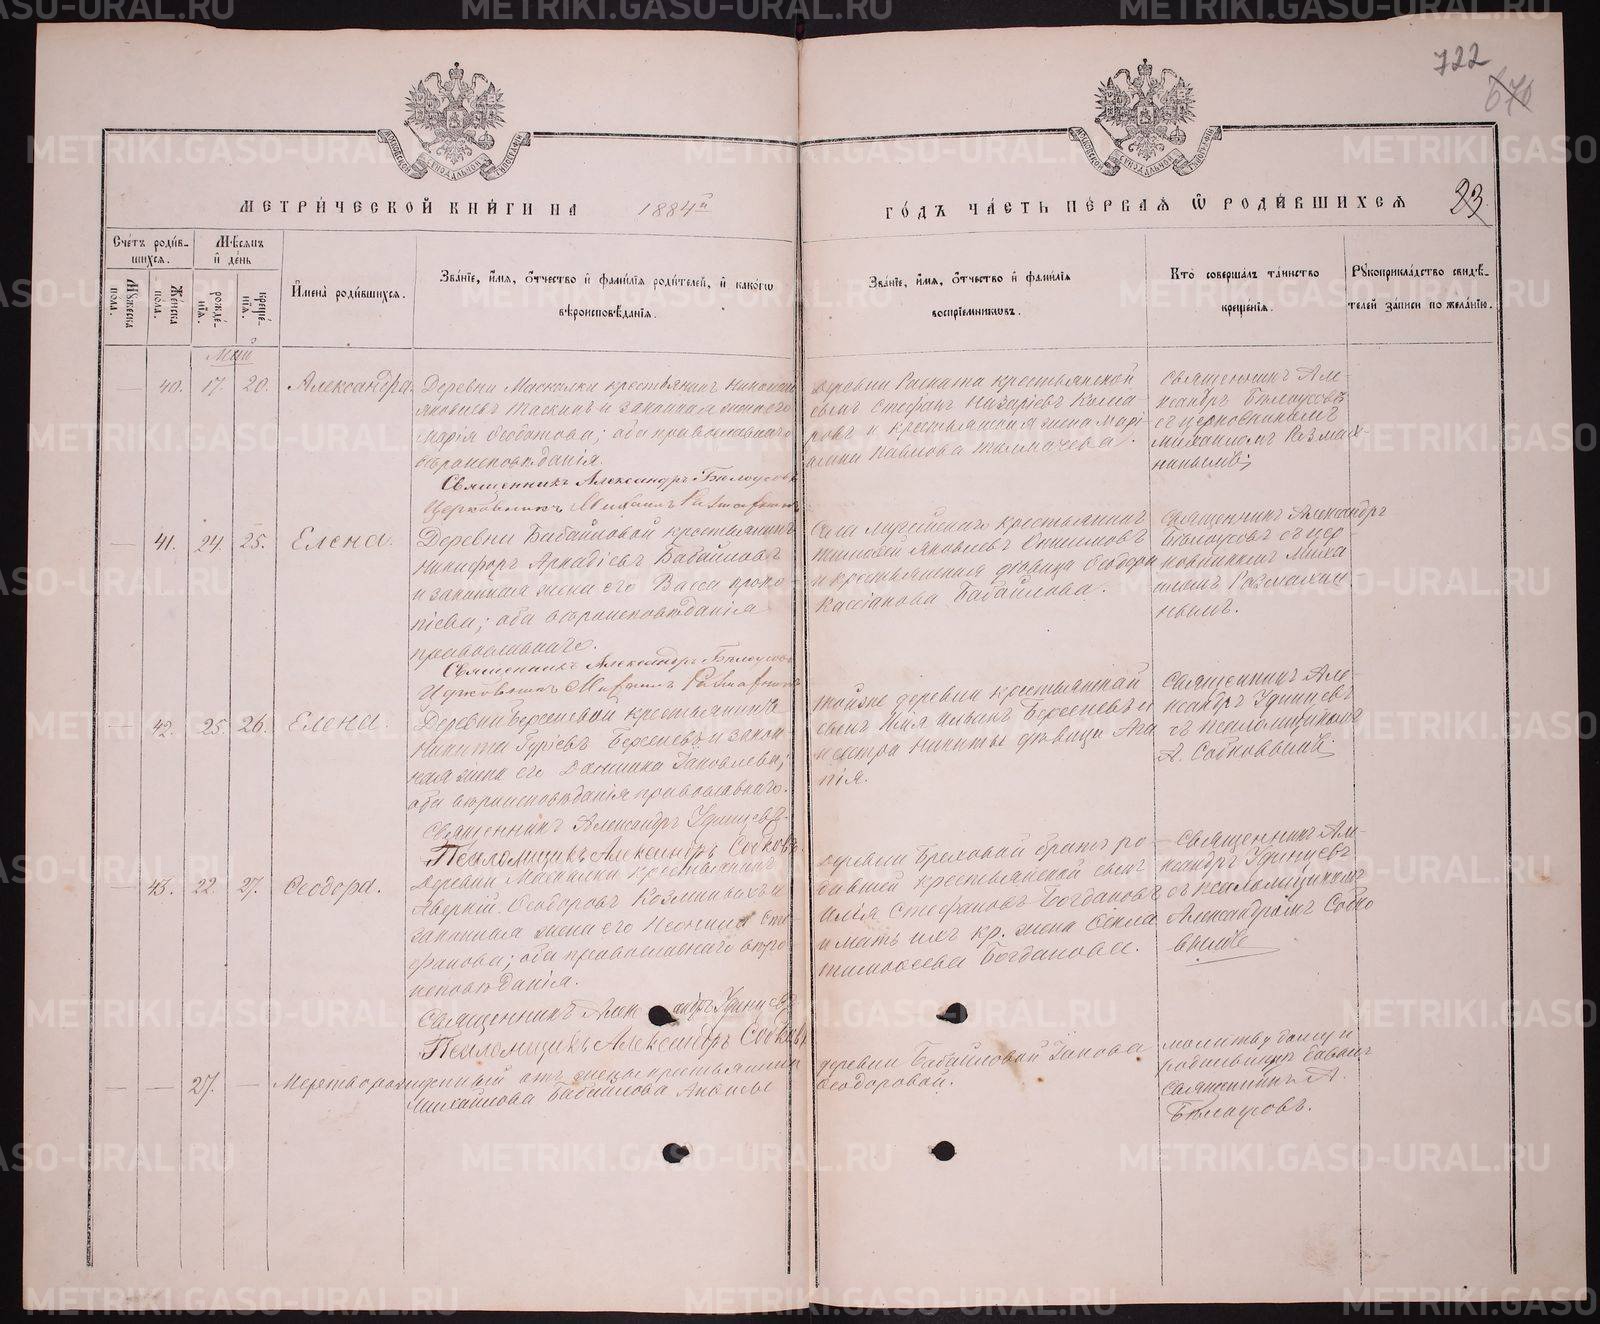 722
670
МЕТРИ́ЧЕСКОЙ КНИ́ГИ НА 1884й
ГО́ДЪ ЧА́СТЬ ПЕ́РВАѦ Ѿ РОДИ́ВШИХСѦ 23.
Сче́тъ роди́в-
шихсѧ.
Мꙋ́жеска
пола.
Же́нска
пола.
Мѣ́сѧцъ
и҆ де́нь
рожде́-
нїѧ.
креще́-
нїѧ.
И҆мена̀ роди́вшихсѧ.
Зва́нїе, и҆́мѧ, ѻ҆́тчество и҆ фами́лїѧ роди́телей, и҆ како́гѡ
вѣроисповѣ́данїѧ.
Зва́нїе, и҆́мѧ, ѻ҆́тчество и҆ фами́лїѧ
воспрїе́мникѡвъ.
Кто̀ соверша́лъ та́инство
креще́нїѧ.
Рꙋкоприкла́дство свидѣ́-
телей за́писи по жела́нїю.
Май
40. 17. 20. Александра.
Деревни Маскалки крестьянинъ Николай
Яковлевъ Таскинъ и законная жена его
Марія Ѳеодотова; оба православнаго
вѣроисповѣданія.
Священникъ Александръ Бѣлоусовъ
Церковникъ Михаилъ
деревни крестьянской
сынъ Стефанъ Назаріевъ Кома-
ровъ и крестьянская жена Марі-
Павлова Толмачева.
Священникъ Але-
ксандръ Бѣлоусовъ
съ церковникомъ
Михаиломъ Размах-
нинымъ.
41. 24. 25. Елена.
Деревни Бабайловой крестьянинъ
Никифоръ Аркадіевъ Бабайловъ
и законная жена его Васса Проко-
піева; оба вѣроисповѣданія
православнаго.
Священникъ Александръ Бѣлоусовъ
Церковникъ Михаилъ
Села крестьянинъ
Тимофей Яковлевъ Онисимовъ
и крестьянская дѣвица Ѳеодора
Кассіанова Бабайлова.
Священникъ Александръ
Бѣлоусовъ съ цер-
ковникомъ Миха-
иломъ Размахни-
нымъ.
42. 25. 26. Елена.
Деревни Берсеневой крестьянинъ
Никита Гуріевъ Берсеневъ и закон-
ная жена его Домника Іаковлева;
оба вѣроисповѣданія православнаго.
Священникъ Александръ Удинцевъ
Псаломщикъ Александръ Собковъ
той же деревни крестьянской
сынъ Илья Ильинъ Берсеневъ и
сестра Никиты дѣвица Ага-
пія.
Священникъ Але-
ксандръ Удинцевъ
съ псаломщикомъ
А. Собковымъ.
43. 22. 27. Ѳеодора.
Деревни Маскалки крестьянинъ
Аверкій Ѳеодоровъ и
законная жена его Неонила Сте-
фанова; оба православнаго вѣро-
исповѣданія.
Священникъ Александръ Удинцевъ
Псаломщикъ Александръ Собковъ
деревни Бреховой братъ ро-
дившей крестьянской сынъ
Илія Стефановъ Богдановъ
и мать ихъ кр. жена Ѳекла
Тимоѳеева Богданова.
Священникъ Але-
ксандръ Удинцевъ
съ псаломщикомъ
Александромъ Собко-
вымъ
27. Мертворожденный отъ жены крестьянина
Михайлова Бабайлова
деревни Бабайловой Іакова
Ѳеодоровой.
молитву давалъ
родильницѣ
Священникъ А.
Бѣлоусовъ.
METRIKI.GASO-URAL.RU